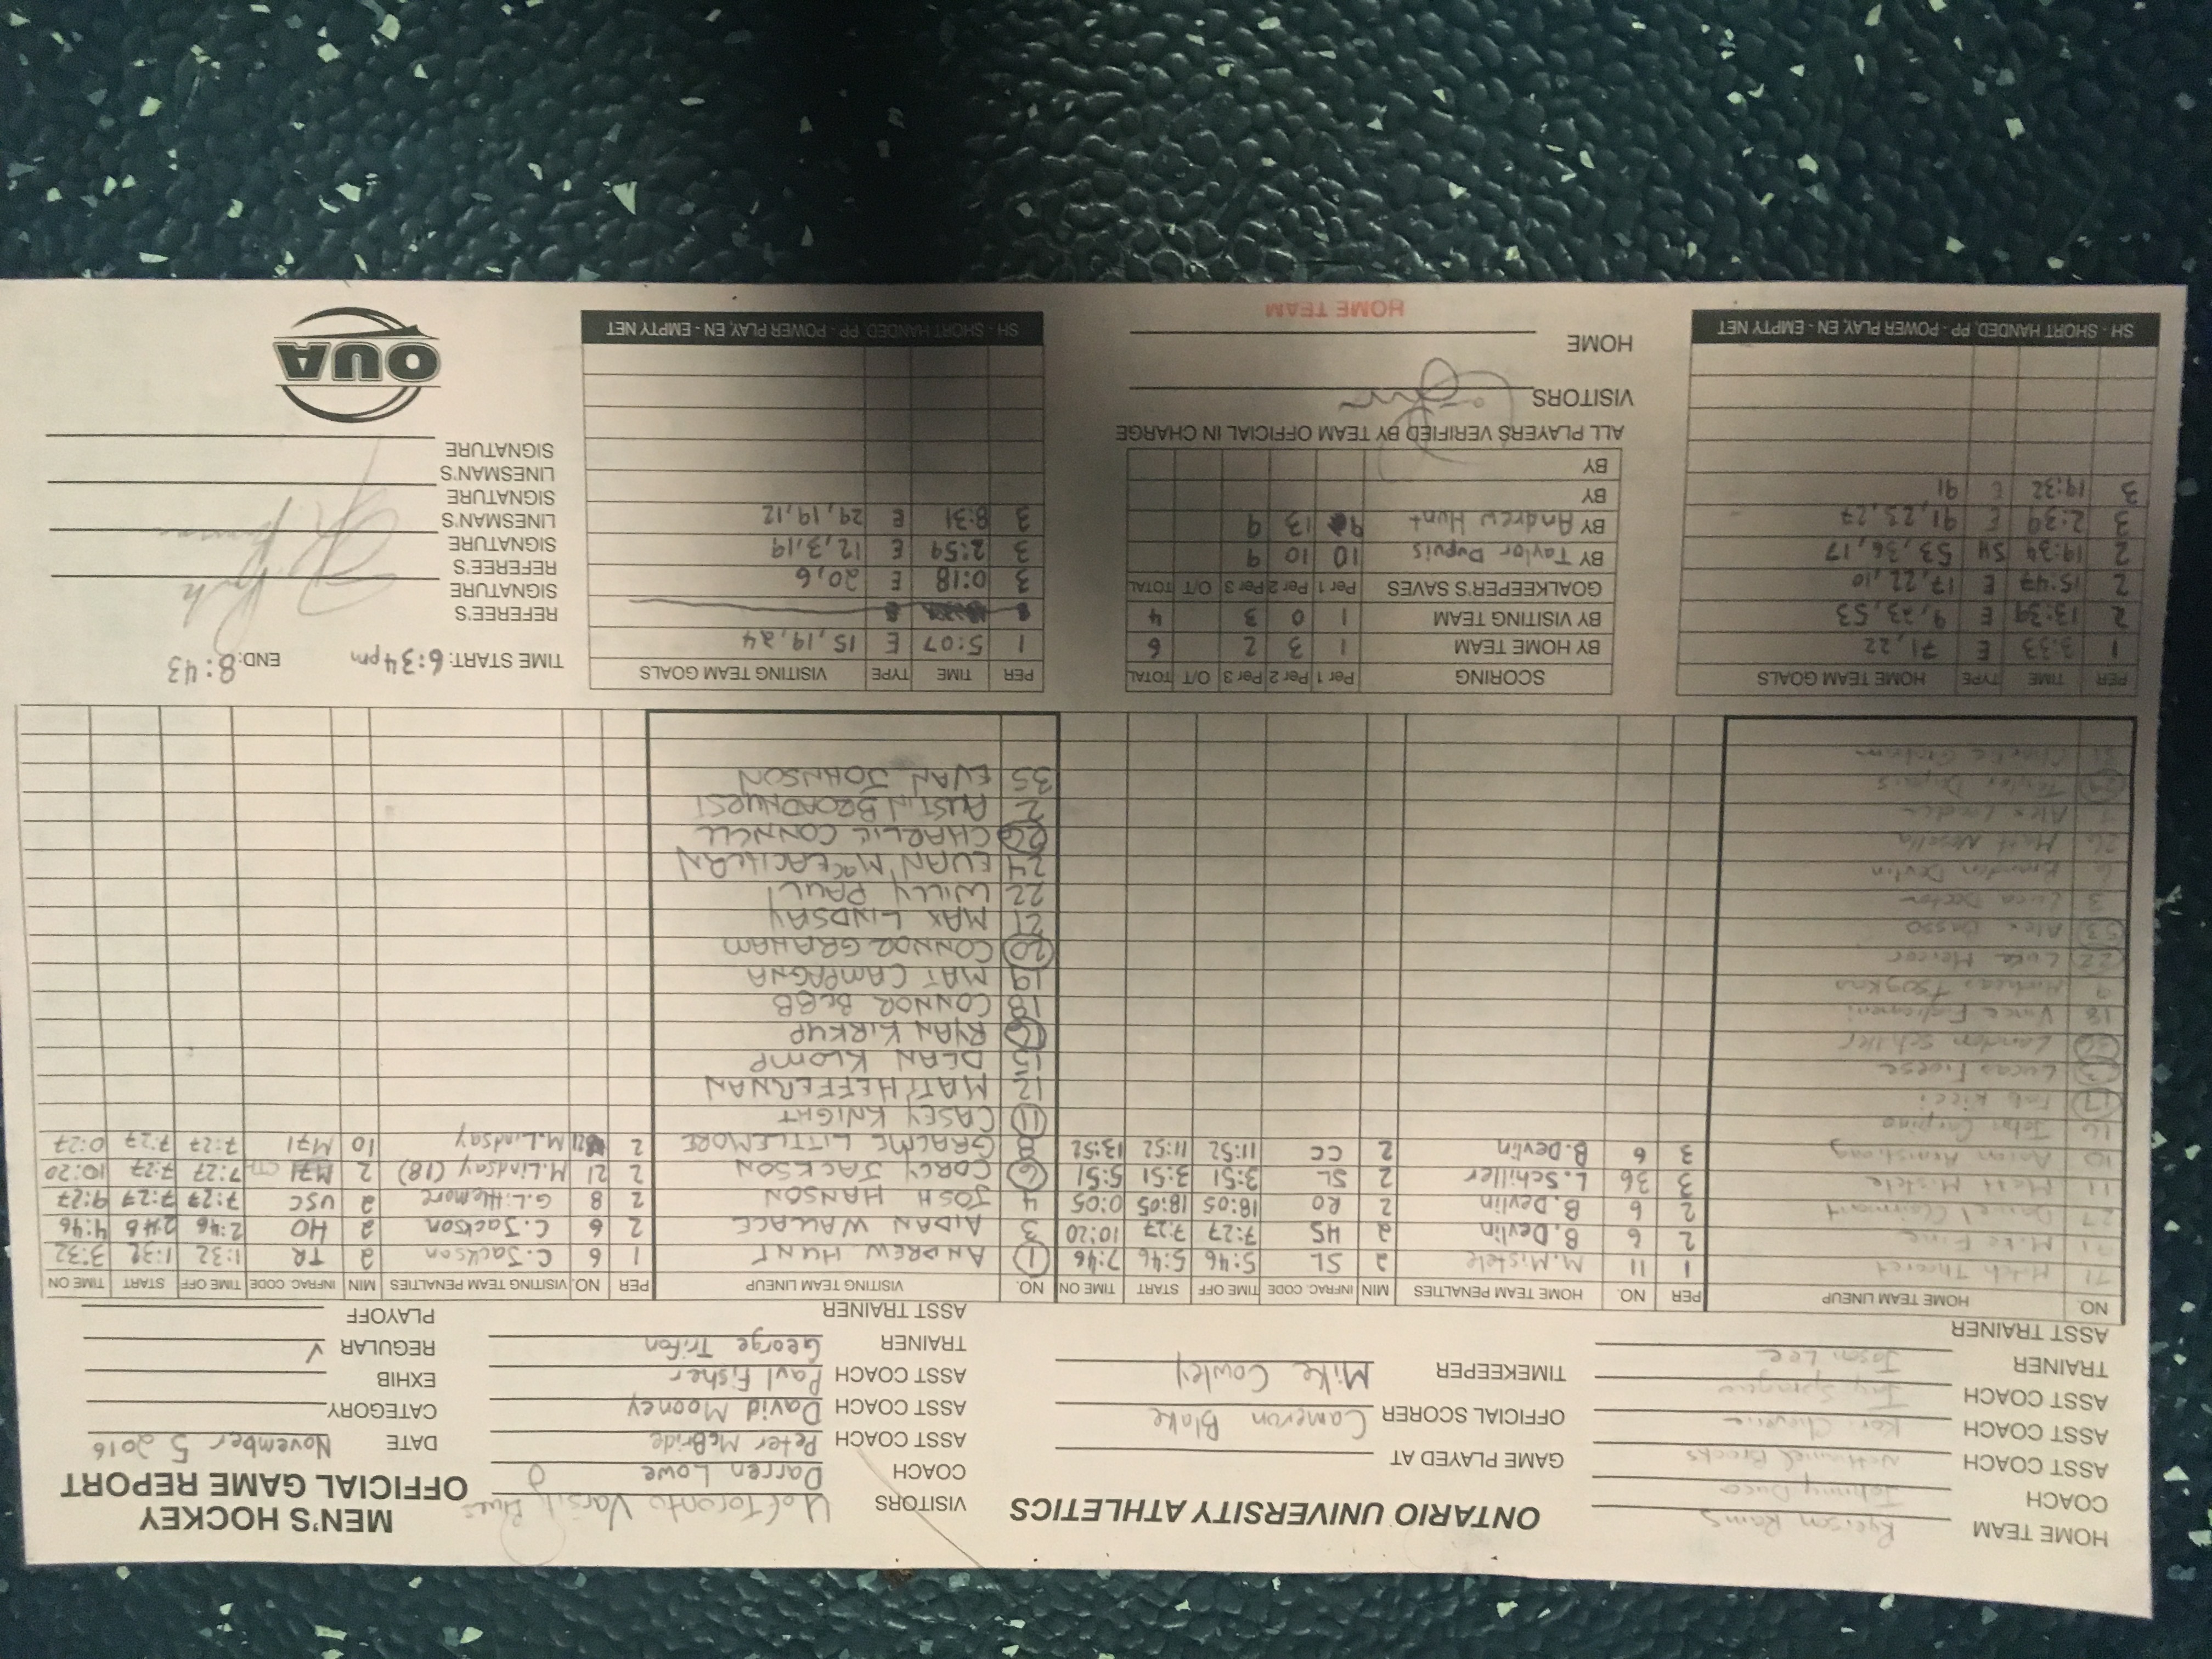 HOME TEAM Ryerson Rams
COACH Johnny Duco
ASST COACH Nathaniel Brooks
ASST COACH
ASST COACH
TRAINER Jason Lee
ASST TRAINER
ONTARIO UNIVERSITY ATHLETICS
GAME PLAYED AT
OFFICIAL SCORER Cameron Blake
TIMEKEEPER Mike Cowley
VISITORS U of Toronto Varsity Blues
COACH Darren Lowe
ASST COACH Peter McBride
ASST COACH David Mooney
ASST COACH Paul Fisher
TRAINER George Trifon
ASST TRAINER
MEN'S HOCKEY
OFFICIAL GAME REPORT
DATE November 5 2016
CATEGORY
EXHIB
REGULAR √
PLAYOFF
NO. HOME TEAM LINEUP
71 Mitch Theoret
91 Mike Fine
27 Daniel Clairmont
11 Matt Mistele
10 Aaron Armstrong
16 John Carpino
17 Fab Ricci
Lucas Froese
36 Landon Schiller
18 Vince Figliomeni
9
22 Luca Mercer
53 Alex Basso
3 Luca Decter
6 Brendan Devlin
26 Matt Nosella
Alex
Taylor Dupuis
31 Charlie Graham
PER NO. HOME TEAM PENALTIES MIN INFRAC. CODE TIME OFF START TIME ON
1 11 M. Mistele 2 SL 5:46 5:46 7:46
2 6 B. Devlin 2 HS 7:27 7:27 10:20
2 6 B. Devlin 2 RO 18:05 18:05 0:05
3 36 L. Schiller 2 SL 3:51 3:51 5:51
3 6 B. Devlin 2 CC 11:52 11:52 13:52
NO. VISITING TEAM LINEUP
1 ANDREW HUNT
3 AIDAN WALLACE
4 JOSH HANSON
6 COREY JACKSON
8 GRAEME LITTLEMORE
11 CASEY KNIGHT
12 MATT HEFFERNAN
15 DEAN KLOMP
16 RYAN KIRKUP
18 CONNOR BEBB
19 MAT CAMPAGNA
20 CONNOR GRAHAM
21 MAX LINDSAY
22 WILLY PAUL
24 EVAN MacEACHERN
26 CHARLIE CONNELL
2 AUSTIN BROADHURST
35 EVAN JOHNSON
PER NO. VISITING TEAM PENALTIES MIN INFRAC. CODE TIME OFF START TIME ON
1 6 C. Jackson 2 TR 1:32 1:32 3:32
2 6 C. Jackson 2 HO 2:46 2:46 4:46
2 8 G. Littlemore 2 USC 7:27 7:27 9:27
2 21 M. Lindsay (18) 2 M71 7:27 7:27 10:20
2 21 M. Lindsay 10 M71 7:27 7:27 0:27
PER TIME TYPE HOME TEAM GOALS
1 3:33 E 71, 22
2 13:39 E 9, 23, 53
2 15:47 E 17, 22, 10
2 19:34 SH 53, 36, 17
3 2:39 E 91, 23, 27
3 19:32 E 91
SH - SHORT HANDED, PP - POWER PLAY, EN - EMPTY NET
SCORING Per 1 Per 2 Per 3 O/T TOTAL
BY HOME TEAM 1 3 2 6
BY VISITING TEAM 1 0 3 4
GOALKEEPER'S SAVES Per 1 Per 2 Per 3 O/T TOTAL
BY Taylor Dupuis 10 10 9
BY Andrew Hunt 9 13 9
BY
BY
ALL PLAYERS VERIFIED BY TEAM OFFICIAL IN CHARGE
VISITORS
HOME
HOME TEAM
PER TIME TYPE VISITING TEAM GOALS
1 5:07 E 15, 19, 24
3 0:18 E 20, 6
3 2:59 E 12, 3, 19
3 8:31 E 29, 19, 12
SH - SHORT HANDED, PP - POWER PLAY, EN - EMPTY NET
TIME START: 6:34pm END: 8:43
REFEREE'S
SIGNATURE
REFEREE'S
SIGNATURE
LINESMAN'S
SIGNATURE
LINESMAN'S
SIGNATURE
OUA